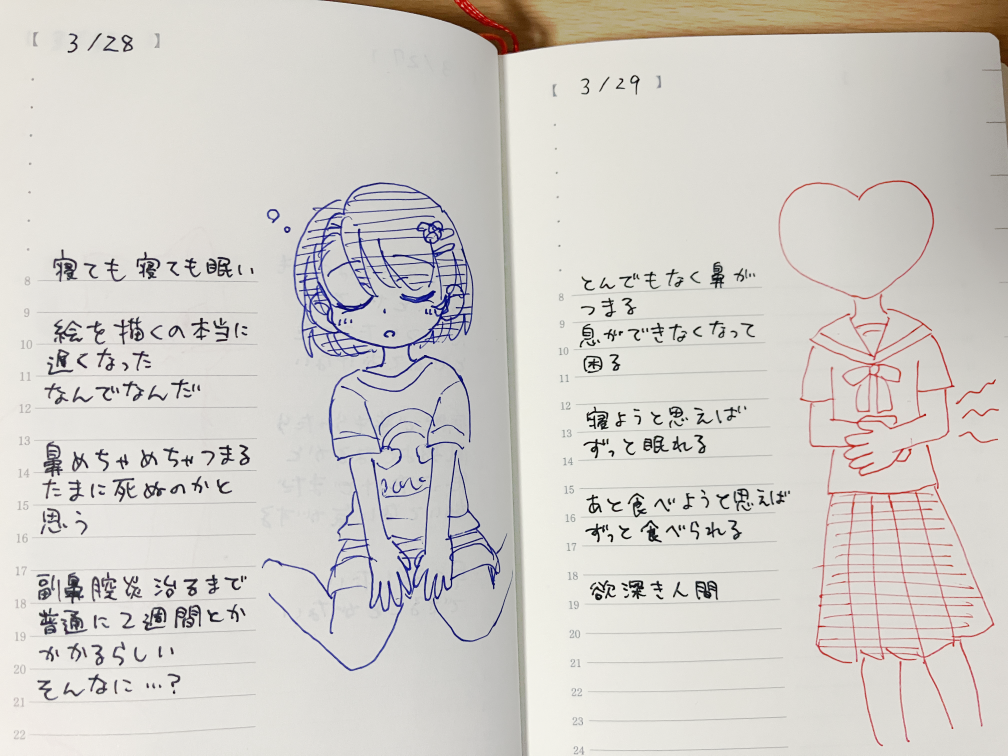 【 3/28 】
8
寝ても寝ても眠い
9
10
絵を描くの本当に
遅くなった
11
なんでなんだ
12
13
鼻めちゃめちゃつまる
14
たまに死ぬのかと
15
思う
16
17
副鼻腔炎治るまで
18
普通に2週間とか
19
かかるらしい
20
そんなに…?
21
22
【 3/29 】
8
とんでもなく鼻が
つまる
9
息ができなくなって
10
困る
11
12
寝ようと思えば
13
ずっと眠れる
14
15
あと食べようと思えば
16
ずっと食べられる
17
18
欲深きん間
19
20
21
22
23
24